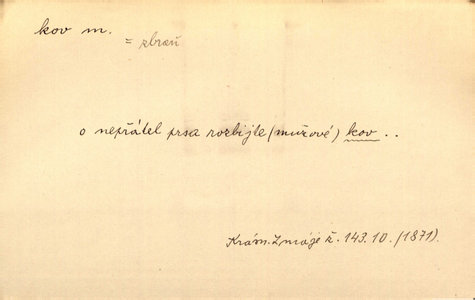 kov m.
= zbraň
o nepřátel prsa rozbijte (mužové) kov ..
Krám. Zmáje ž. 143.10. (1871).